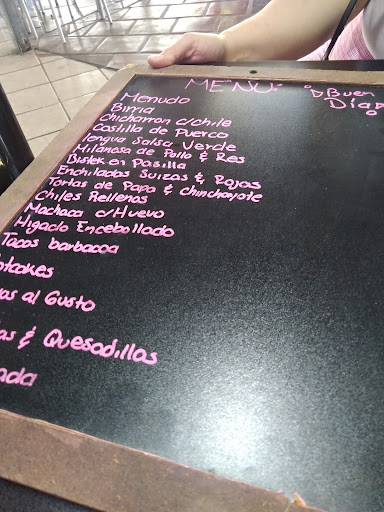 MENU:
Buen
Día
Menudo
Birria
Chicharron c/chile
Costilla de Puerco
lengua Salsa Verde
Milanesa de Pollo & Res
Bistek en Pasilla
Enchiladas Suizas & Rojas
Tortas de Papa & Chinchayote
Chiles Rellenos
Machaca c/Huevo
Higado Encebollado
Tacos barbacoa
otcakes
os al Gusto
as & Quesadillas
ada